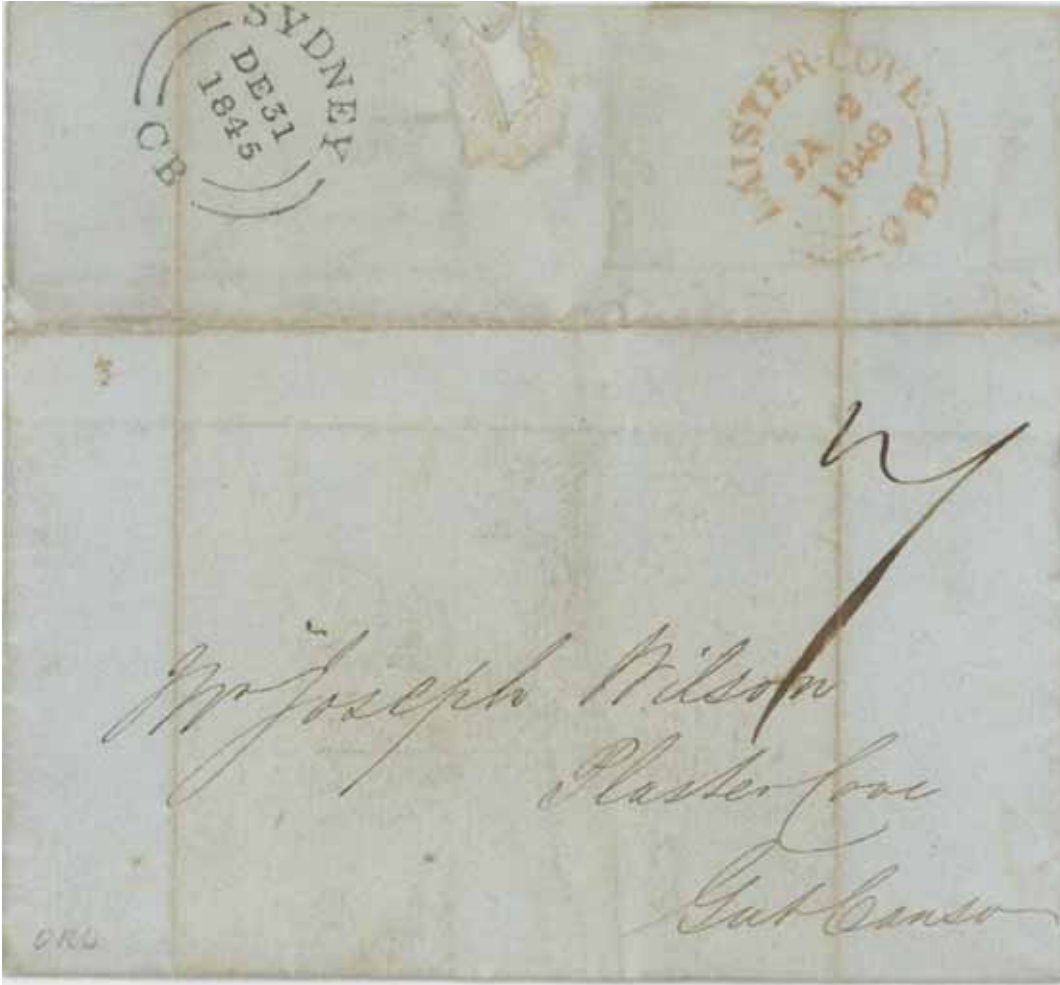 SYDNEY
DE 31
1845
CB
PLAISTER-COVE
JA 2
1846
CB
7
Mr Joseph Wilson
Plaster Cove
Gut Canso